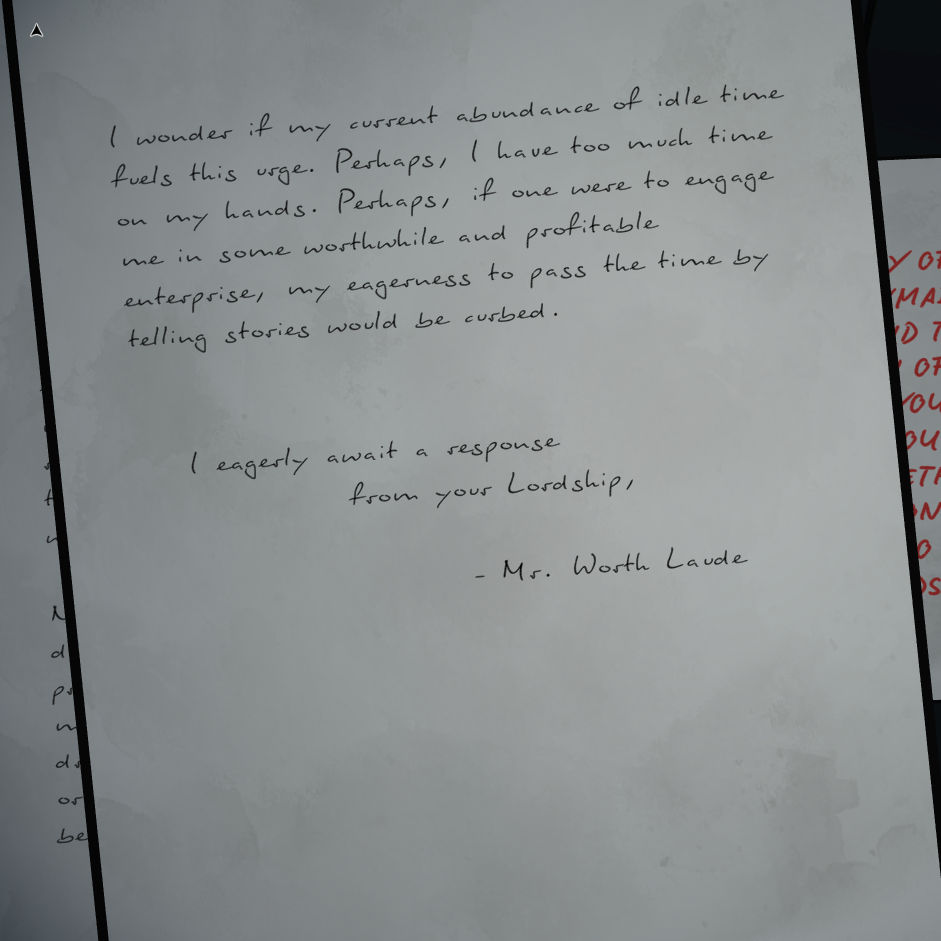 I wonder if my current abundance of idle time
fuels this urge. Perhaps, I have too much time
on my hands. Perhaps, if one were to engage
me in some worthwhile and profitable
enterprise, my eagerness to pass the time by
telling stories would be curbed.
I eagerly await a response
from your Lordship,
- Mr. Worth Laude